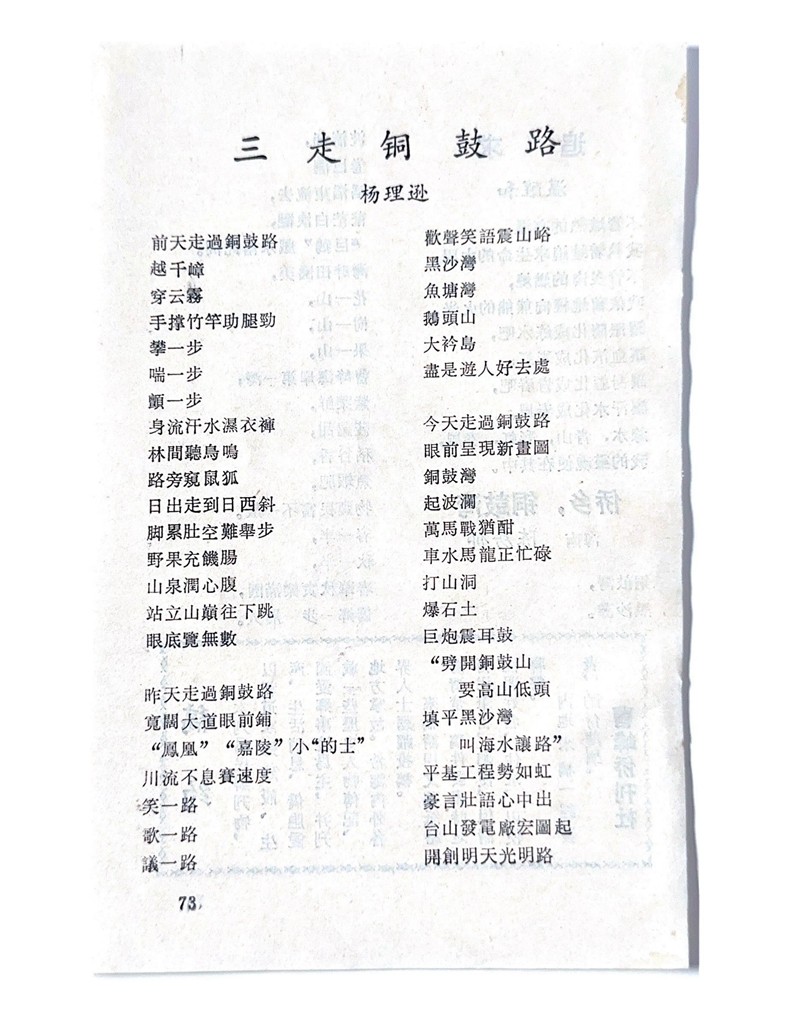 三走铜鼓路
杨理逊
前天走過銅鼓路
越千嶂
穿云霧
手撑竹竿助腿勁
攀一步
喘一步
顫一步
身流汗水濕衣褲
林間聽鳥鳴
路旁窺鼠狐
日出走到日西斜
脚累肚空難舉步
野果充饑腸
山泉潤心腹
站立山巔往下跳
眼底覽無數
昨天走過銅鼓路
寬闊大道眼前鋪
“鳳凰”“嘉陵”小“的士”
川流不息賽速度
笑一路
歌一路
議一路
歡聲笑語震山峪
黑沙灣
魚塘灣
鵝頭山
大衿島
盡是遊人好去處
今天走過銅鼓路
眼前呈現新畫圖
銅鼓灣
起波瀾
萬馬戰猶酣
車水馬龍正忙碌
打山洞
爆石土
巨炮震耳鼓
“劈開銅鼓山
要高山低頭
填平黑沙灣
叫海水讓路”
平基工程勢如虹
豪言壯語心中出
台山發電廠宏圖起
開創明天光明路
73